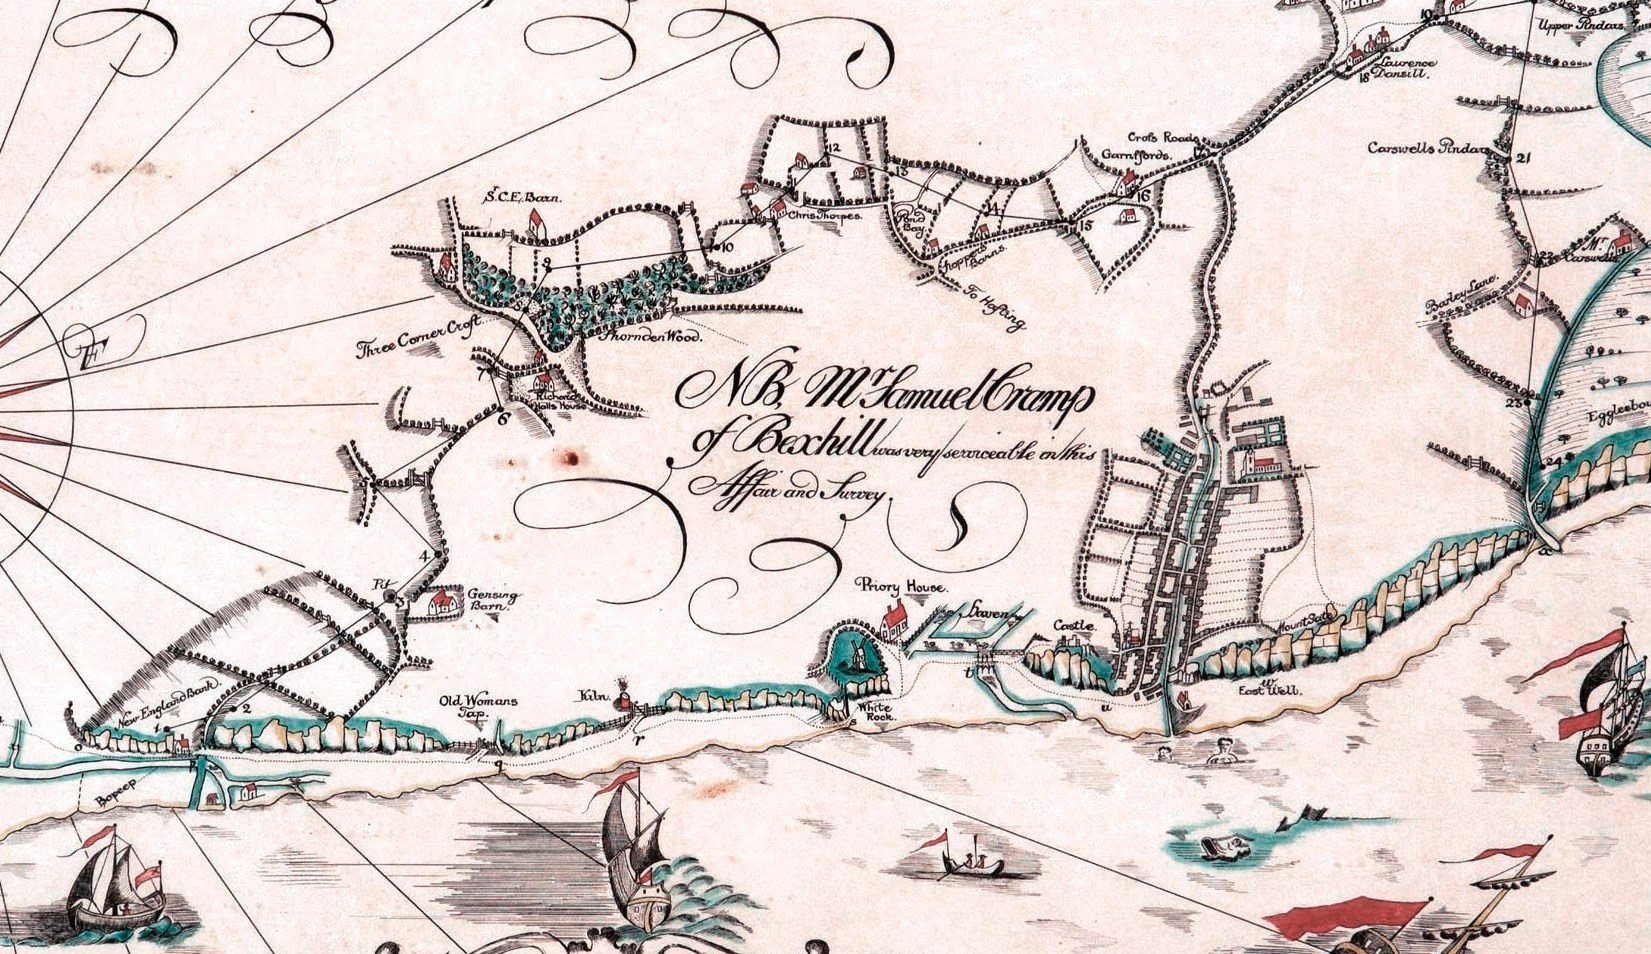 10
Upper Pindars.
Laurence
Dansill.
18
Cross Roads
17
Garnsfords.
16
Carswells Pindars
21
12
13
11
Chris Thorpes.
Pond
Bay.
14
15
Barns.
To Hasting
Sr. C.E. Barn.
9
10
Three Corner Croft.
Thornden Wood.
7
Richard
Halls House
6
E
22
Mr
Carswells
Barley Lane.
23
24
NB, Mr Samuel Cramp
of Bexhill was very serviceable in this
Affair and Survey.
5
4
Pit
3
Gensing
Barn.
Priory House.
Castle.
Mount
East Well.
w
a
New England Bank.
2
1
o
p
Bopeep
Old Womans
Tap.
q
Kiln.
r
White
Rock.
s
t
u